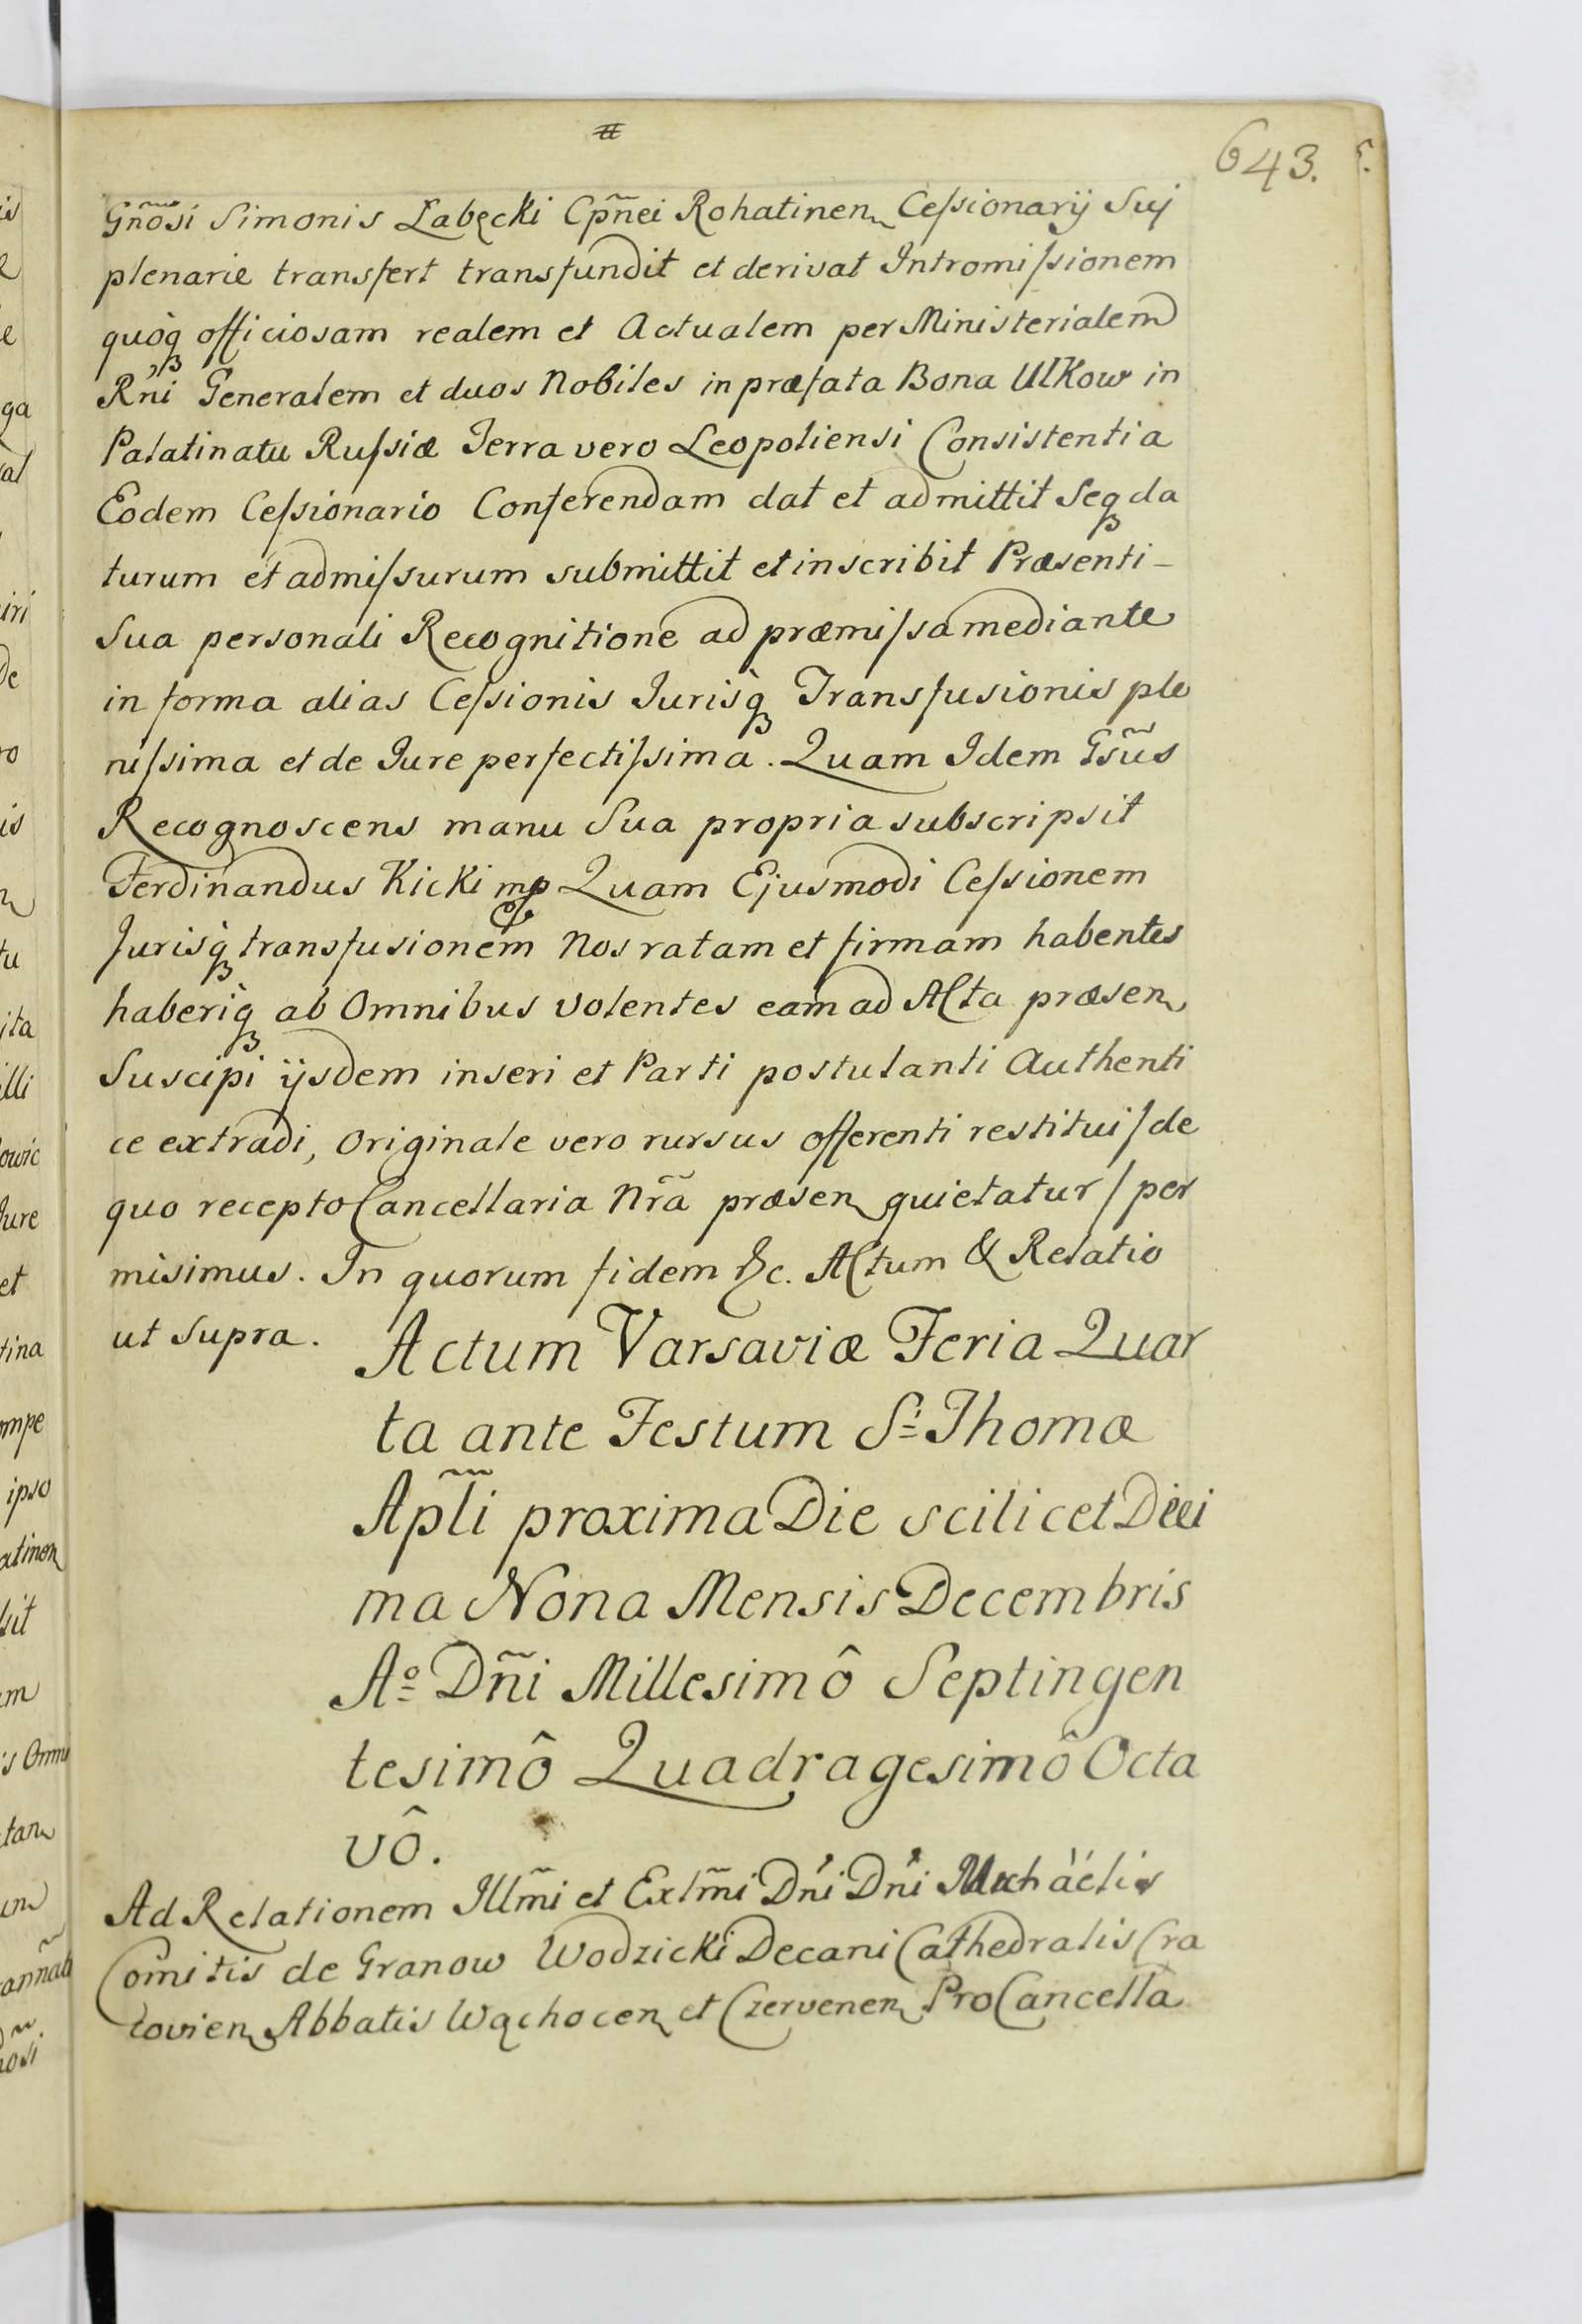 643.
Gñosi Simonis Łabęcki Cpñei Rohatinen Cessionarÿ Suj
plenarie transfert transfundit et derivat Intromissionem
quoq̀ officiosam realem et Actualem per Ministerialem
Rńi Generalem et duos Nobiles in præfata Bona Ulkow in
Palatinatu Russiæ Terra vero Leopoliensi Consistentia
Eodem Cessionario Conferendam dat et admittit Seq da
turum et admissurum submittit et inscribit Præsenti-
Sua personali Recognitione ad præmissa mediante
in forma alias Cessionis Jurisq̀ Transfusionis ple
nissima et de Jure perfectissima. Quam Idem Gsũs
Recognoscens manu Sua propria subscripsit
Ferdinandus Kicki mp Quam Ejusmodi Cessionem
Jurisq̀ transfusionem Nos ratam et firmam habentes
haberiq̀ ab Omnibus volentes eam ad Acta præsen
Suscipi ÿsdem inseri et Parti postulanti Authenti
ce extradi, Originale vero rursus offerenti restitui / de
quo recepto Cancellaria Nrã præsen quietatur / per
misimus. In quorum fidem &c. Actum & Relatio
ut Supra.
Actum Varsaviæ Feria Quar
ta ante Festum S: Thomæ
Apl̃i proxima Die scilicet Deci
ma Nona Mensis Decembris
Aº Dñi Millesimô Septingen
tesimô Quadragesimô Octa
vô.
Ad Relationem Illm̃i et Exlm̃i Dńi Dńi Michàélis
Comitis de Granow Wodzicki Decani Cathedralis Cra
covien Abbatis Wąchocen et Czervenen ProCancella